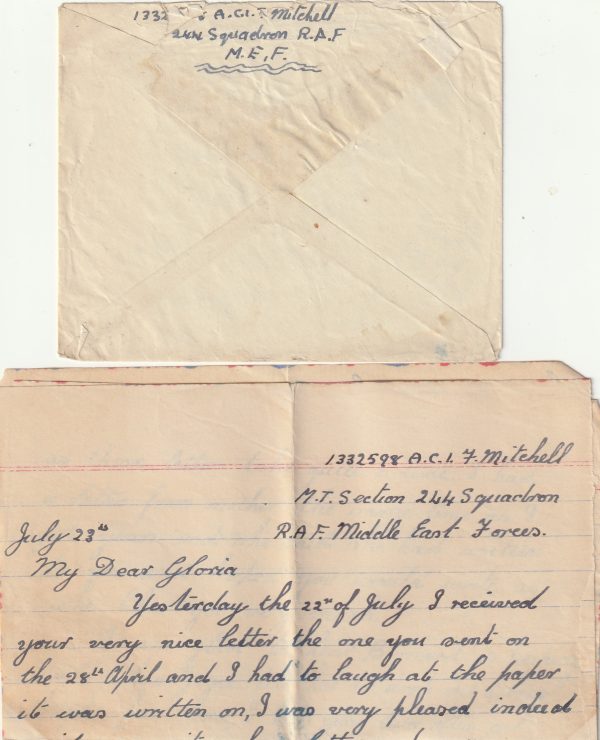 1332 8 A.C.1. F Mitchell
244 Squadron R.A.F
M.E.F.
1332598 A.C.1. F. Mitchell
M.T. Section 244 Squadron
July 23rd R.A.F. Middle East Forces.
My Dear Gloria
Yesterday the 22nd of July I received
your very nice letter the one you sent on
the 28th April and I had to laugh at the paper
it was written on, I was very pleased indeed